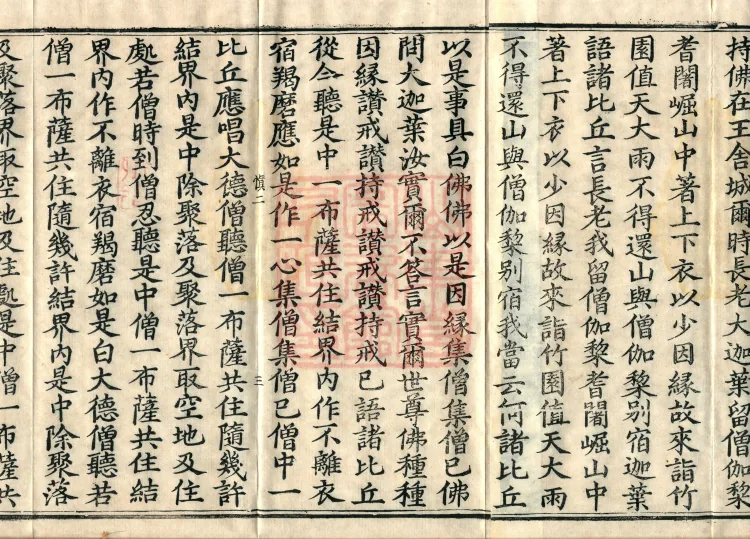 持佛在王舍城爾時長老大迦葉留僧伽黎
耆闍崛山中著上下衣以少因緣故來詣竹
園值天大雨不得還山與僧伽黎別宿迦葉
語諸比丘言長老我留僧伽黎耆闍崛山中
著上下衣以少因緣故來詣竹園值天大雨
不得還山與僧伽黎別宿我當云何諸比丘
以是事具白佛佛以是因緣集僧集僧已佛
問大迦葉汝實爾不答言實爾世尊佛種種
因緣讚戒讚持戒讚戒讚持戒已語諸比丘
從今聽是中一布薩共住結界內作不離衣
宿羯磨應如是作一心集僧集僧已僧中一
慎二
三
比丘應唱大德僧聽僧一布薩共住隨幾許
結界內是中除聚落及聚落界取空地及住
處若僧時到僧忍聽是中僧一布薩共住結
界內作不離衣宿羯磨如是白大德僧聽若
僧一布薩共住隨幾許結界內是中除聚落
及聚落界取空地及住處是中僧一布薩共